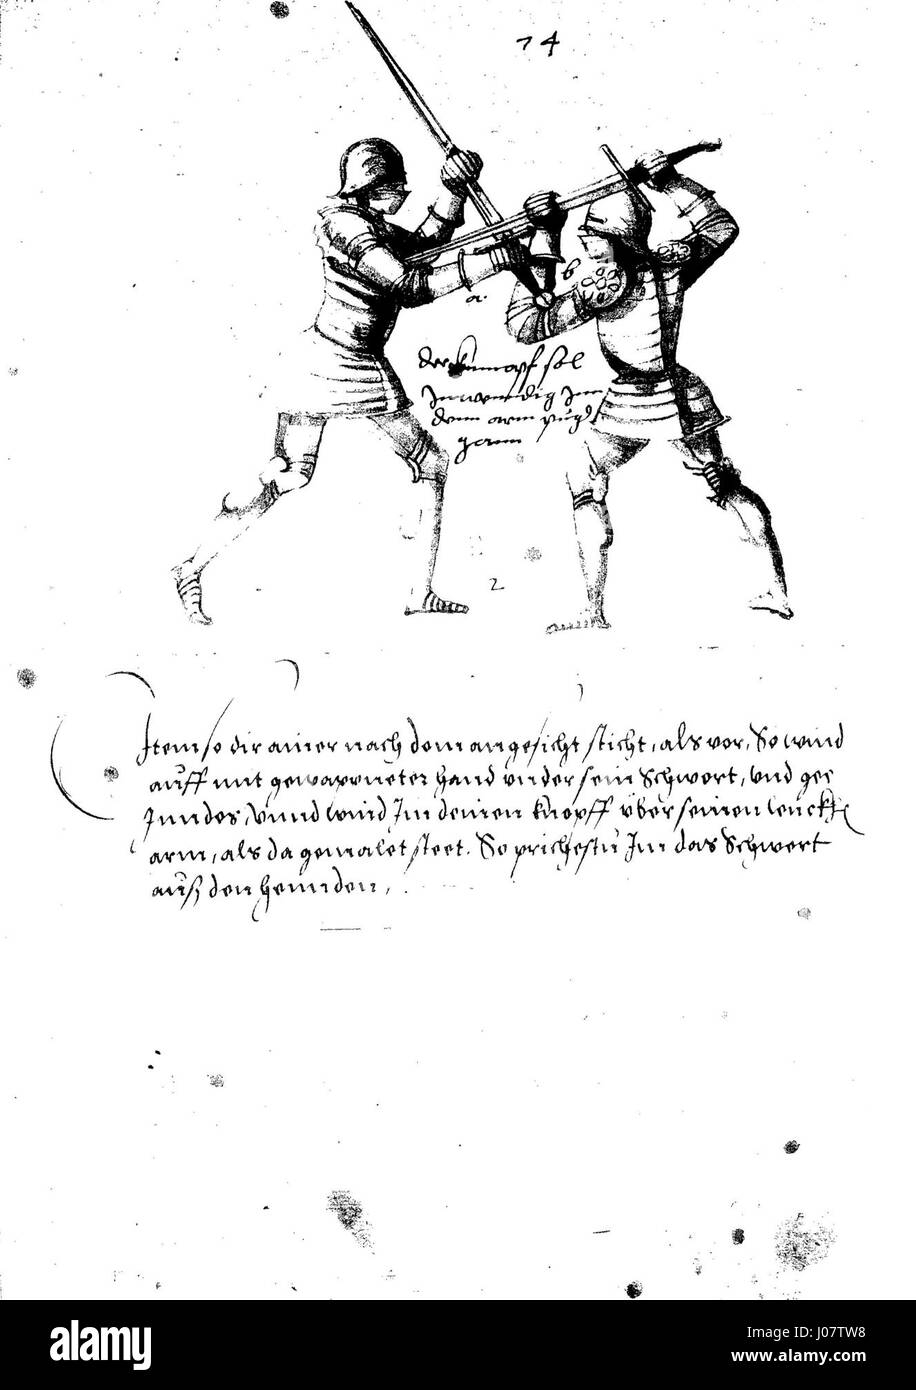 74
a.
b
der knnopf sol
Inwendig Inn
dem arm
2
Item so dir ainer nach dem angesicht sticht, als vor, So wind
auff mit gewappneter hand vnder sein Schwert, vnd gee
Inndes, vnnd wind Im deinen knopff vber seinen lenckhe
arm, als da gemalet steet. So prichestu Im das Schwert
aus den hennden.
alamy
Image ID: J07TW8
www.alamy.com